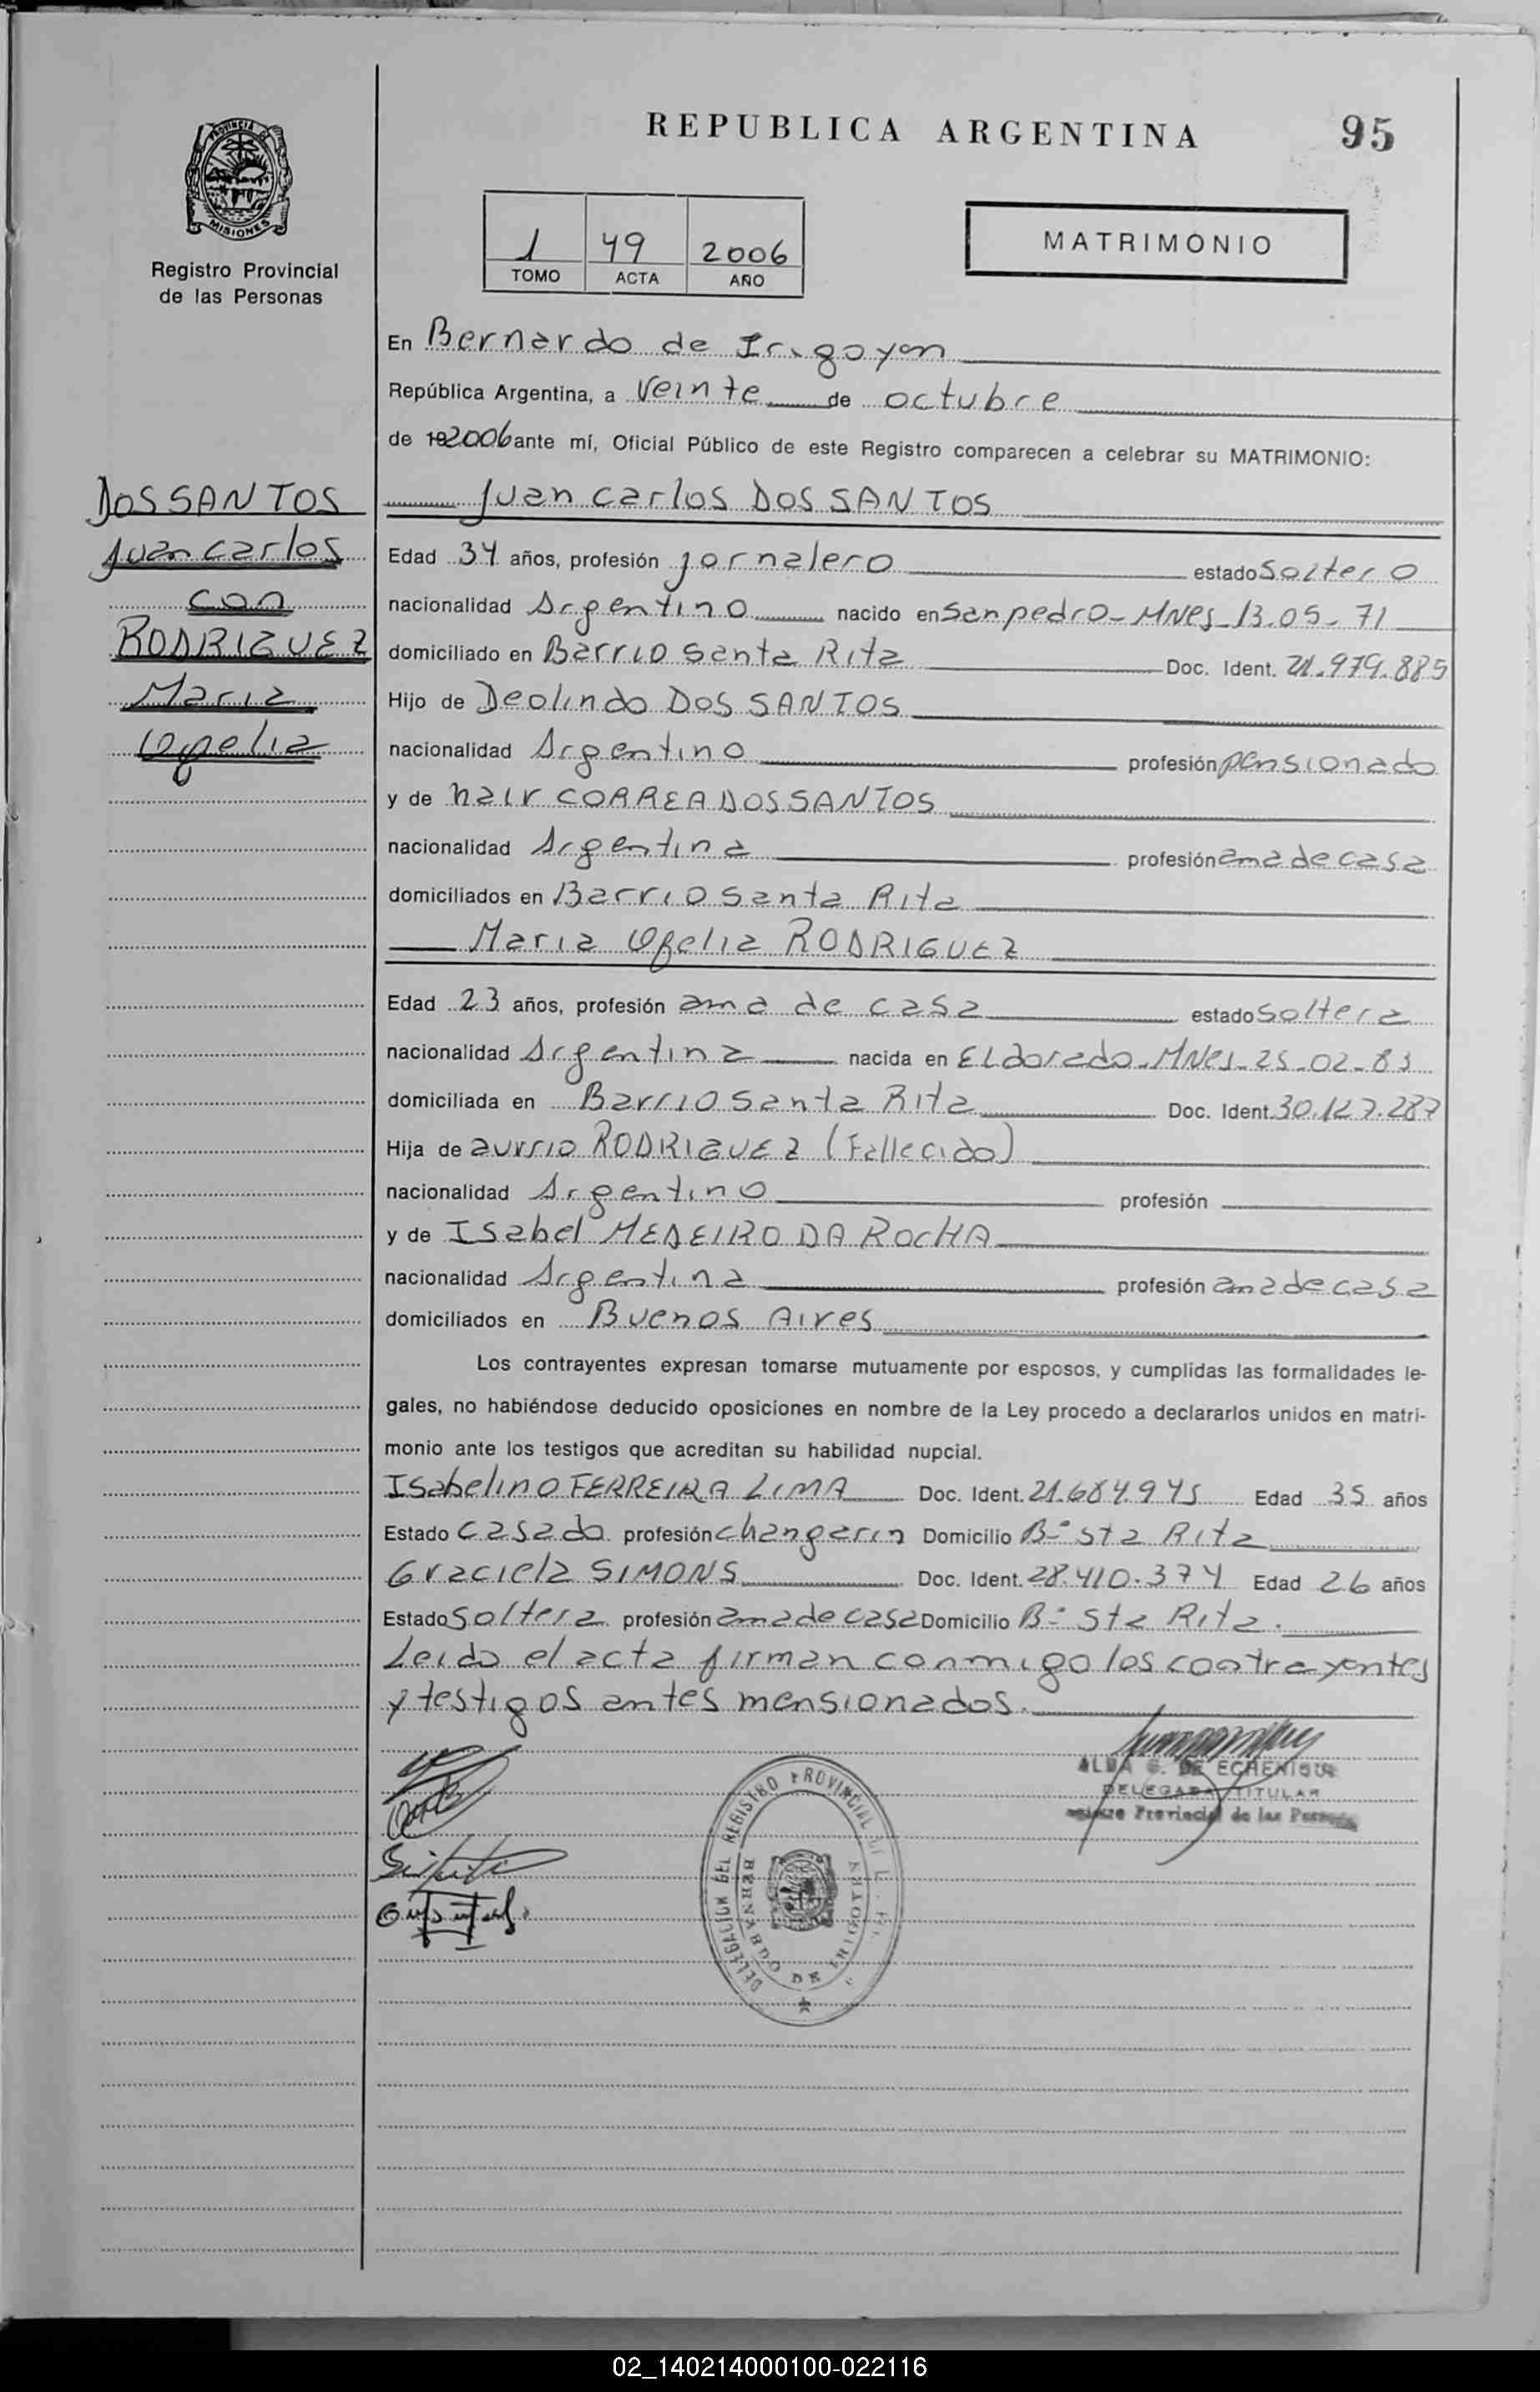 REPUBLICA ARGENTINA
95
PROVINCIA DE MISIONES
Registro Provincial
de las Personas
1 49 2006
TOMO ACTA AÑO
MATRIMONIO
En Bernardo de Irigoyen
República Argentina, a Veinte de octubre
de 192006 ante mí, Oficial Público de este Registro comparecen a celebrar su MATRIMONIO:
DOS SANTOS
Juan carlos
con
RODRIGUEZ
Maria
Ofelia
Juan carlos DOS SANTOS
Edad 34 años, profesión jornalero estado Soltero
nacionalidad Argentino nacido en San pedro - MNes 13.05-71
domiciliado en Barrio Santa Rita Doc. Ident. 21.979.885
Hijo de Deolindo DOS SANTOS
nacionalidad Argentino profesión pensionado
y de nair CORREA DOS SANTOS
nacionalidad Argentina profesión ama de casa
domiciliados en Barrio Santa Rita
Maria Ofelia RODRIGUEZ
Edad 23 años, profesión ama de casa estado Soltera
nacionalidad Argentina nacida en ELdorado - MNes - 25-02-83
domiciliada en Barrio Santa Rita Doc. Ident. 30.127.287
Hija de aurrio RODRIGUEZ (Fallecido)
nacionalidad Argentino profesión
y de Isabel MEDEIRO DA ROCHA
nacionalidad Argentina profesión ama de casa
domiciliados en Buenos Aires
Los contrayentes expresan tomarse mutuamente por esposos, y cumplidas las formalidades le-
gales, no habiéndose deducido oposiciones en nombre de la Ley procedo a declararlos unidos en matri-
monio ante los testigos que acreditan su habilidad nupcial.
Isabelino FERREIRA LIMA Doc. Ident. 21.684.945 Edad 35 años
Estado casado profesión changarin Domicilio Bº Sta Rita
Graciela SIMONS Doc. Ident. 28.410.374 Edad 26 años
Estado Soltera profesión ama de casa Domicilio Bº Sta Rita.
Leido el acta firman conmigo los contrayentes
y testigos antes mensionados.
ALBA G. DE ECHENIQUE
DELEGADA TITULAR
Provincial de las Personas
DELEGACION DEL REGISTRO PROVINCIAL DE
BERNARDO DE IRIGOYEN
02_140214000100-022116